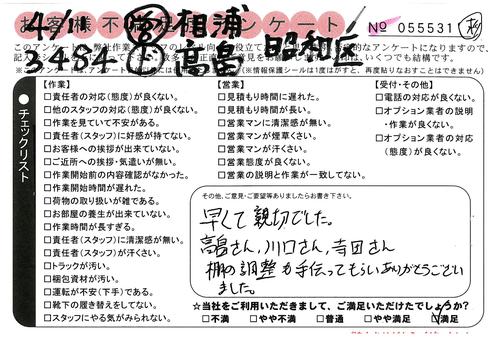 お客様不満足度アンケート № 055531
4/19 業 相浦
3484 高畠 昭和区
【作業】
□責任者の対応(態度)が良くない。
□他のスタッフの対応(態度)が良くない。
□作業を見ていて不安がある。
□責任者(スタッフ)に好感が持てない。
□お客様への挨拶が出来ていない。
□ご近所への挨拶・気遣いが無い。
□作業開始前の内容確認がなかった。
□作業開始時間が遅れた。
□荷物の取り扱いが雑である。
□お部屋の養生が出来ていない。
□作業時間が長すぎる。
□責任者(スタッフ)に清潔感が無い。
□責任者(スタッフ)が汗くさい。
□トラックが汚い。
□梱包資材が汚い。
□運転が不安(下手)である。
□靴下の履き替えをしてない。
□スタッフにやる気がみられない。
【営業】
□見積もり時間に遅れた。
□見積もり時間が長い。
□営業マンに清潔感が無い。
□営業マンが煙草くさい。
□営業マンが汗くさい。
□営業態度が良くない。
□営業の説明と作業が一致してない。
【受付・その他】
□電話の対応が良くない。
□オプション業者の説明
・作業が良くない。
□オプション業者の対応
(態度)が良くない。
チェックリスト
その他、ご意見・ご要望等ありましたらお書き下さい。
早くて親切でした。
高畠さん,川口さん,寺田さん
棚の調整も手伝ってもらいありがとうござい
ました。
☆当社をご利用いただきまして、ご満足いただけたでしょうか?
□不満 □やや不満 □普通 □やや満足 □満足